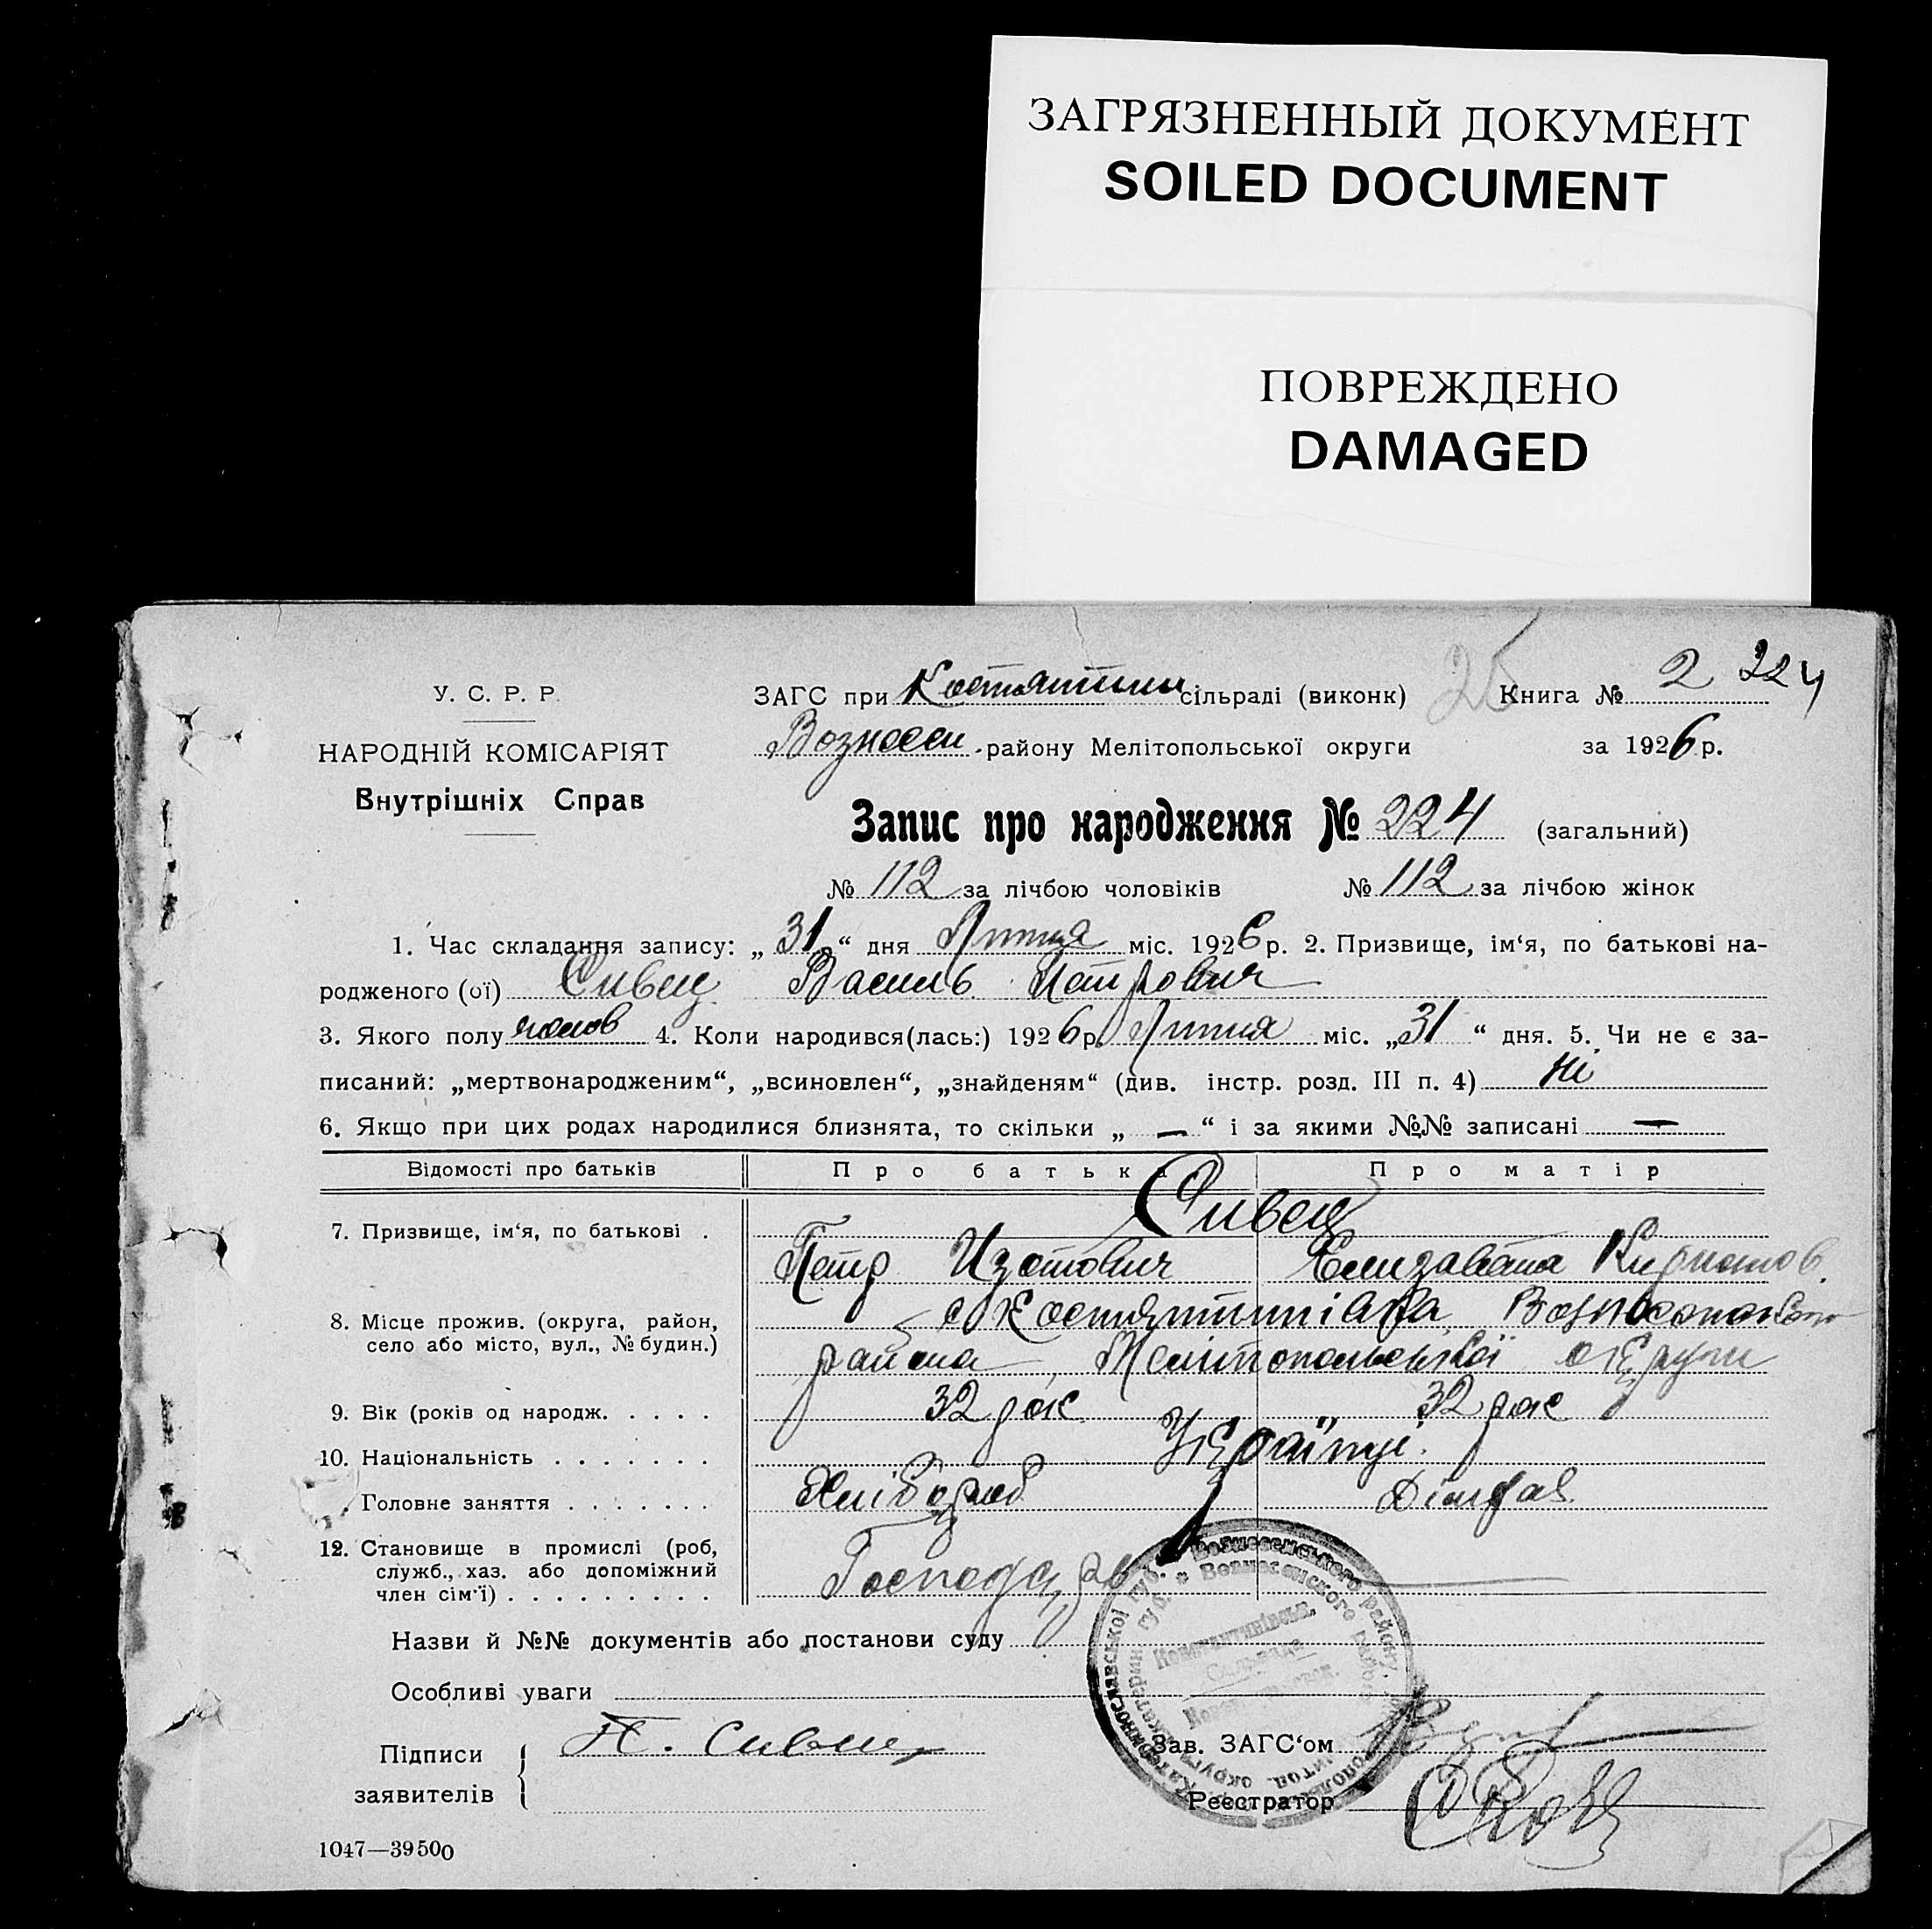 ЗАГРЯЗНЕННЫЙ ДОКУМЕНТ
SOILED DOCUMENT
ПОВРЕЖДЕНО
DAMAGED
25
224
У. С. Р. Р.
НАРОДНІЙ КОМІСАРІЯТ
Внутрішніх Справ
ЗАГС при Костянтини сільраді (виконк) Книга № 2
Вознесен. району Мелітопольської округи за 1926 р.
Запис про народження № 224 (загальний)
№ 112 за лічбою чоловіків № 112 за лічбою жінок
1. Час складання запису: „31“ дня Липця міс. 1926 р. 2. Призвище, ім‘я, по батькові на-
родженого (ої) Сивец Василь Петрович
3. Якого полу чолов 4. Коли народився(лась:) 1926 р. Липця міс. „31“ дня. 5. Чи не є за-
писаний: „мертвонародженим“, „всиновлен“, „знайденям“ (див. інстр. розд. III п. 4) Ні
6. Якщо при цих родах народилися близнята, то скільки „—“ і за якими №№ записані —
Відомості про батьків Про батька Про матір
Сивец
7. Призвище, ім‘я, по батькові .
Петр Изотович Елизавета
8. Місце прожив. (округа, район, село або місто, вул., № будин.)
с Костянтинівка
района Мелітопольської округи
9. Вік (років од народж. . . . . 32 рок 32 рок
10. Національність . . . . . . . Українці.
Головне заняття . . . . . . . Хлібороб
12. Становище в промислі (роб,
служб., хаз. або допоміжний
член сім‘ї) . . . . . . . . . Господарь —
Назви й №№ документів або постанови суду
Особливі уваги
Підписи заявителів П. Сивец
Зав. ЗАГС‘ом
Реєстратор
Катеринославської губ. Вознесенського району
1047—39500